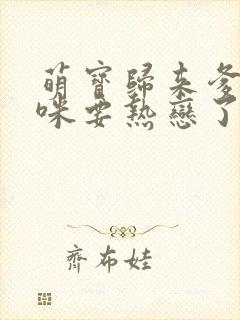 萌寶歸來爹
咪要熱戀了
齊布娃